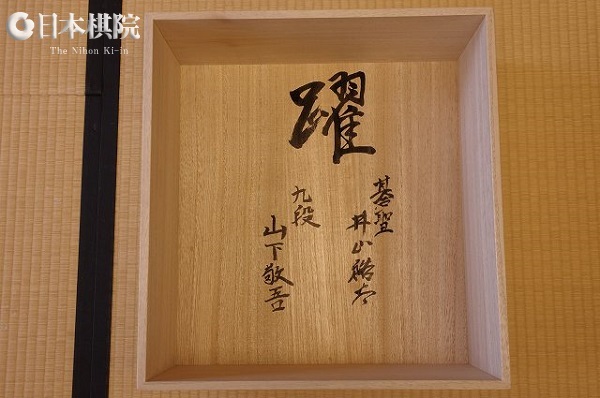 日本棋院
The Nihon Ki-in
躍
碁聖
井山裕太
九段
山下敬吾